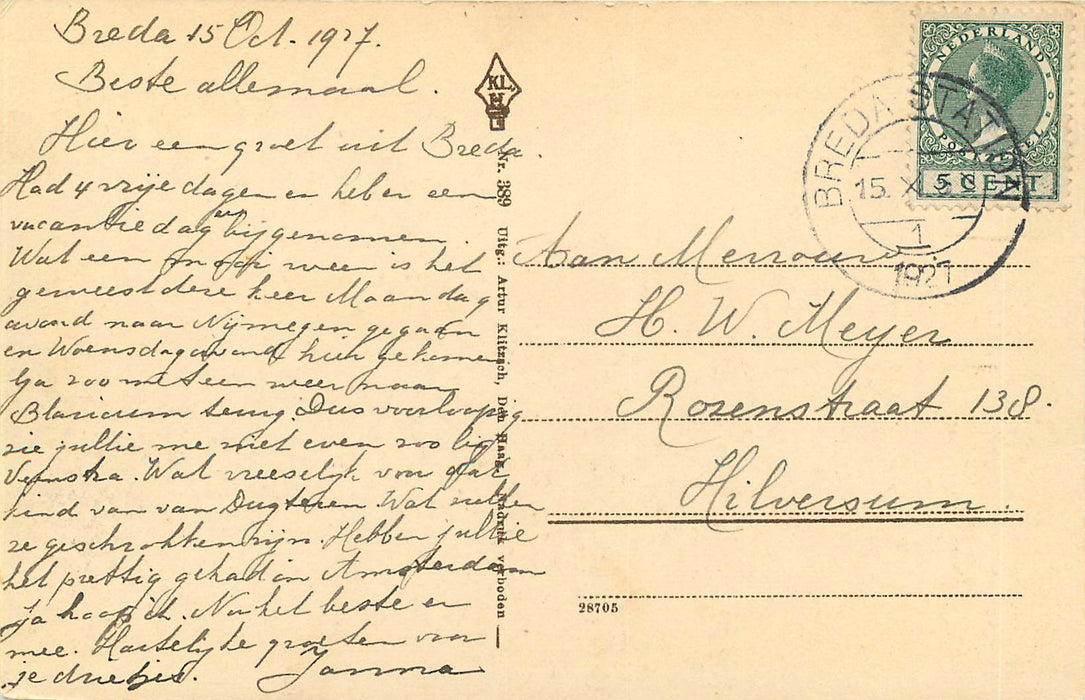 Breda 15 Oct. 1927.
Beste allemaal.
Hier een groet uit Breda.
Had 4 vrije dagen en heb er een
vacantiedag bijgenomen.
Wat een mooi weer is het
geweest deze keer Maandag
avond naar Nijmegen gegaan
en Woensdagavond hier gekomen
Ga zoo meteen weer naar
Blaricum terug Dus voorloopig
zie jullie me niet even zoo bij
Veenstra. Wat vreeselijk voor dat
kind van van Dugteren. Wat zullen
ze geschrokken zijn. Hebben jullie
het prettig gehad in Amsterdam
ja hoop ik. Nu het beste er
mee. Hartelijke groeten van
je
Janna
KL.
Nr. 389 Uitg.: Artur Klitzsch, Den Haag. Nadruk verboden
NEDERLAND
POSTZEGEL
5 CENT
BREDA STATION
15. X
1
1927
Aan Mevrouw
H. W. Meyer
Rozenstraat 138.
Hilversum.
28705